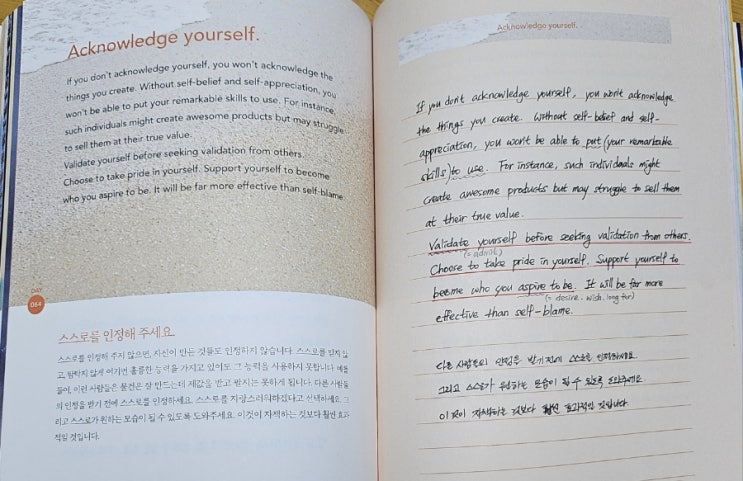 Acknowledge yourself.
If you don't acknowledge yourself, you won't acknowledge the
things you create. Without self-belief and self-appreciation, you
won't be able to put your remarkable skills to use. For instance,
such individuals might create awesome products but may struggle
to sell them at their true value.
Validate yourself before seeking validation from others.
Choose to take pride in yourself. Support yourself to become
who you aspire to be. It will be far more effective than self-blame.
DAY
064
스스로를 인정해 주세요.
스스로를 인정해 주지 않으면, 자신이 만든 것들도 인정하지 않습니다. 스스로를 믿지 않
고, 탐탁지 않게 여기면 훌륭한 능력을 가지고 있어도 그 능력을 사용하지 못합니다. 예를
들어, 이런 사람들은 물건은 잘 만드는데 제값을 받고 팔지는 못하게 됩니다. 다른 사람들
의 인정을 받기 전에 스스로를 인정하세요. 스스로를 자랑스러워하겠다고 선택하세요. 그
리고 스스로가 원하는 모습이 될 수 있도록 도와주세요. 이것이 자책하는 것보다 훨씬 효과
적일 것입니다.
Acknowledge yourself.
If you don't acknowledge yourself, you won't acknowledge
the things you create. Without self-belief and self-
appreciation, you won't be able to put (your remarkable
skills) to use. For instance, such individuals might
create awesome products but may struggle to sell them
at their true value.
Validate yourself before seeking validation from others.
(= admit)
Choose to take pride in yourself. Support yourself to
become who you aspire to be. It will be far more
(= desire. wish. long for)
effective than self-blame.
다른 사람들의 인정을 받기 전에 스스로를 인정하세요.
그리고 스스로가 원하는 모습이 될 수 있도록 도와주세요.
이것이 자책하는 것보다 훨씬 효과적일 것입니다.